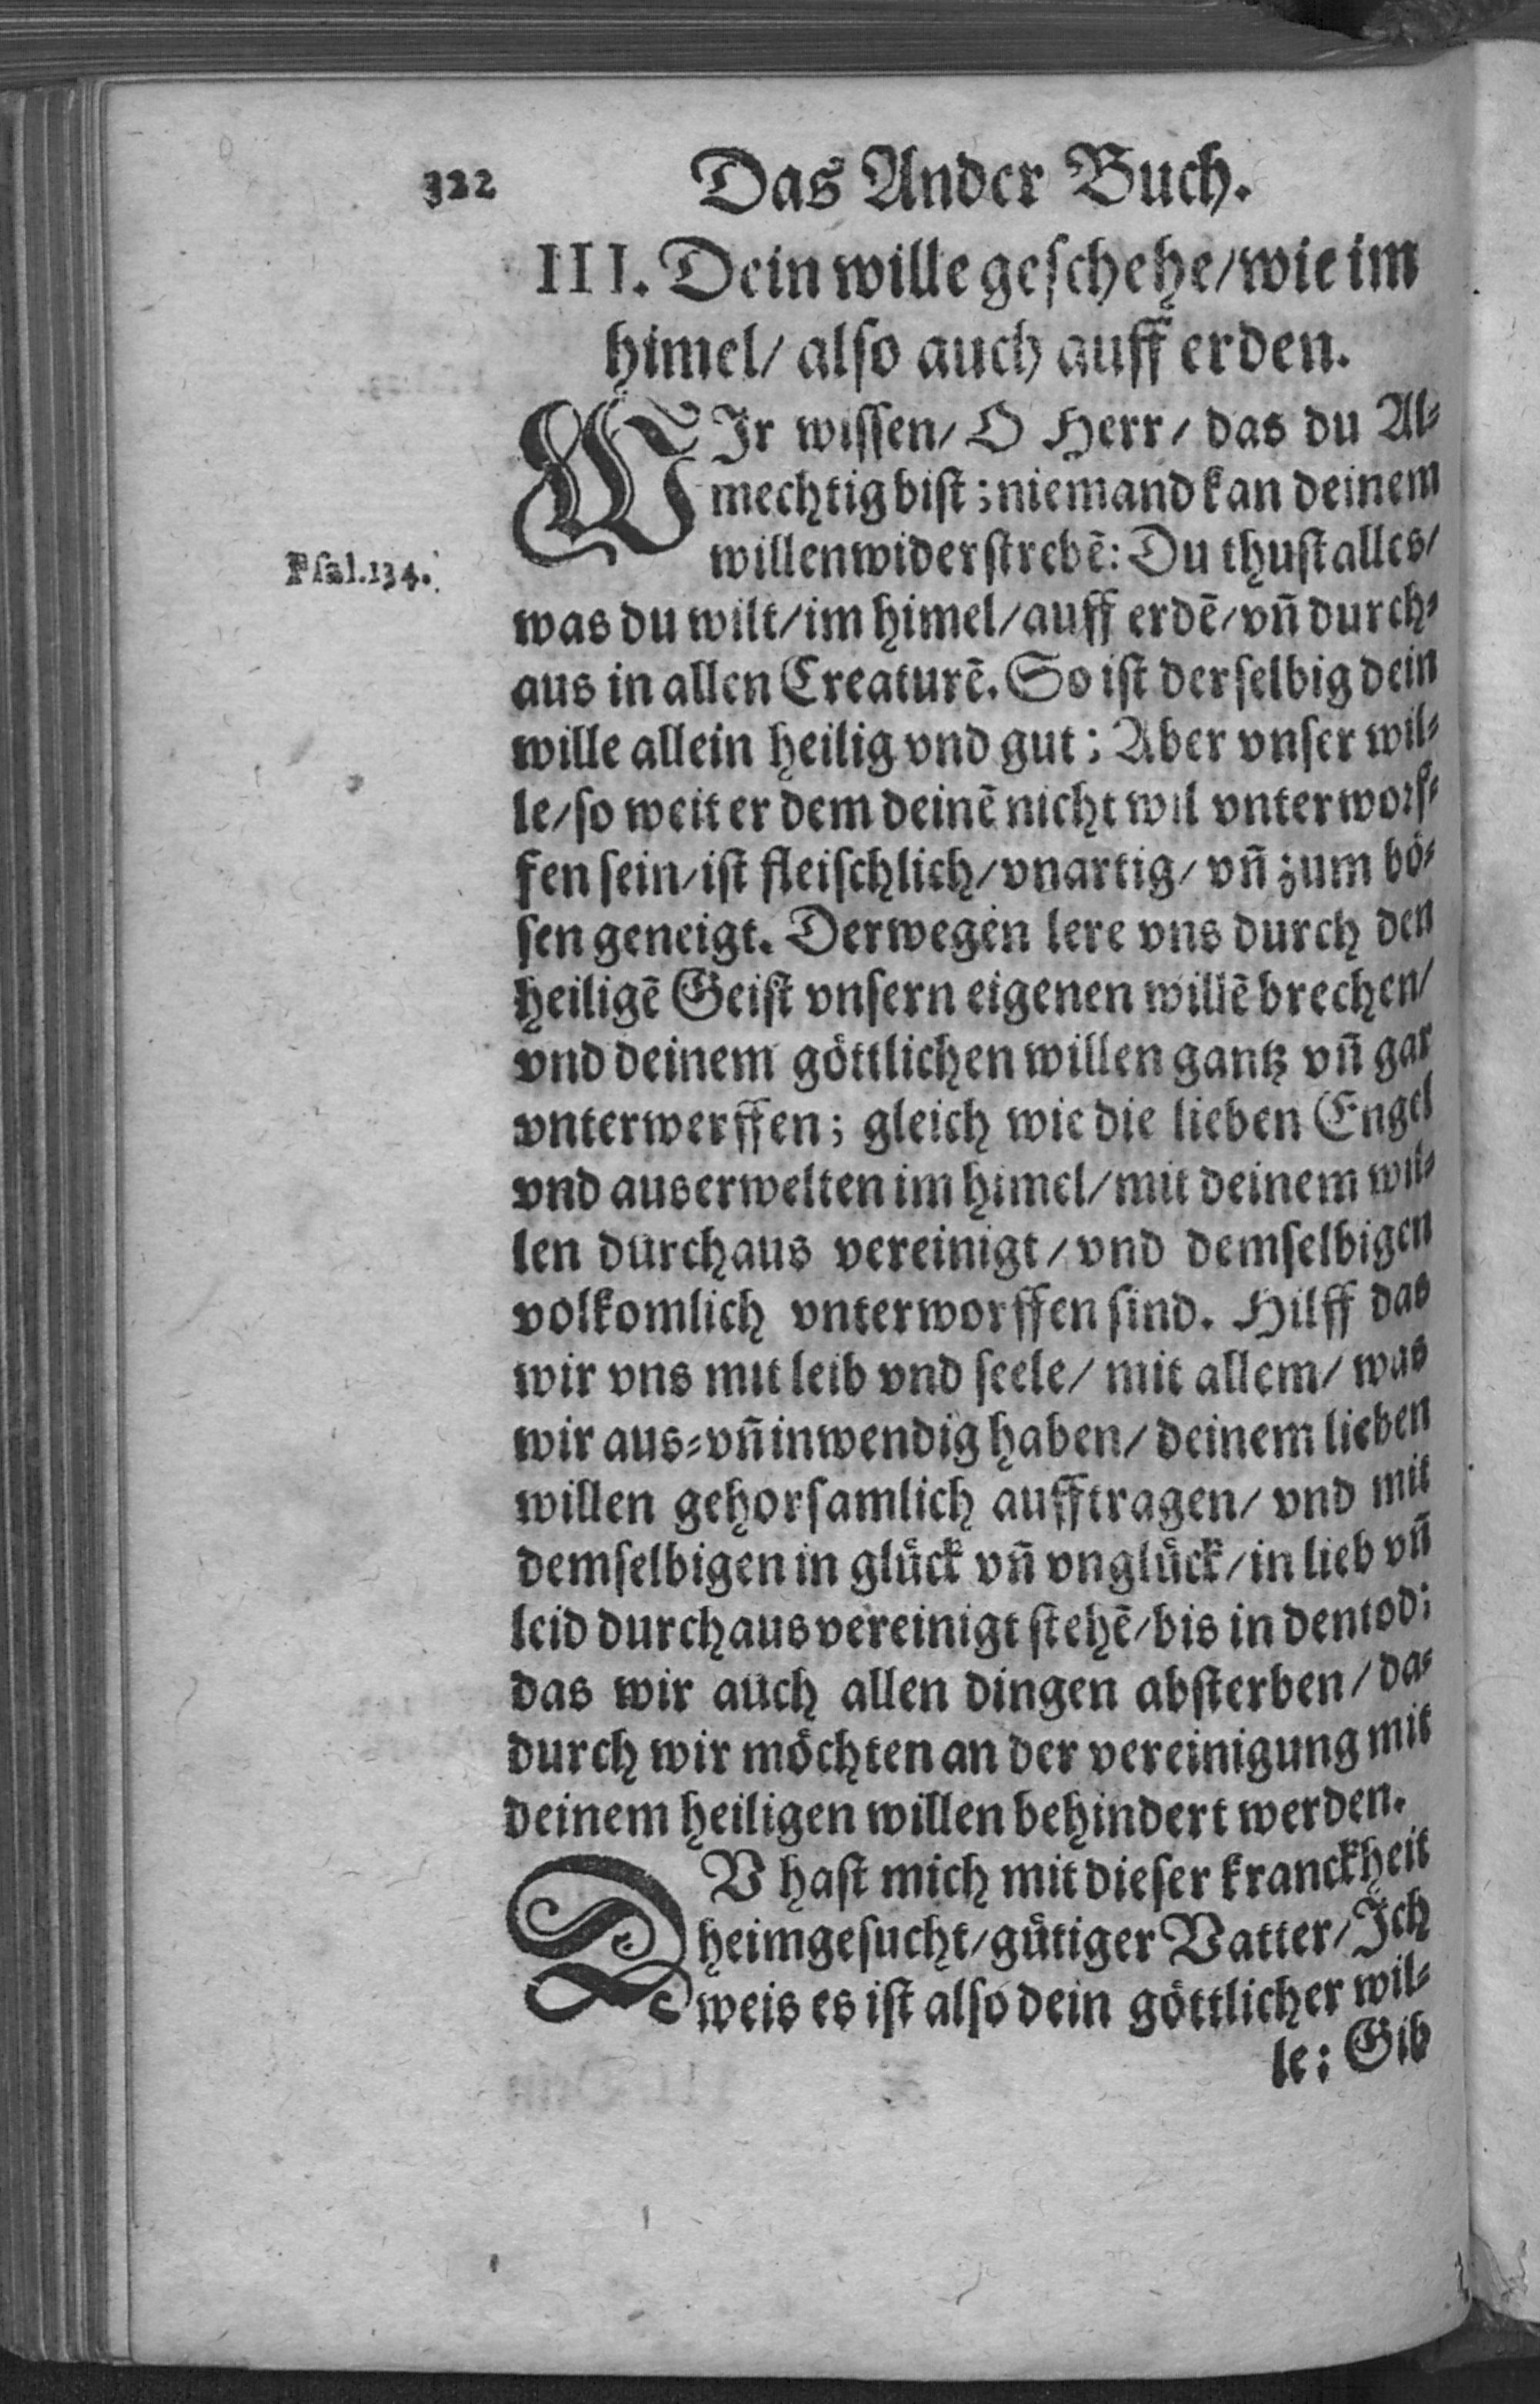 322 Das Ander Buch.
III. Dein wille geschehe/wie im
himel/ also auch auff erden.
WIr wissen/ O Herr/ das du Al⸗
mechtig bist; niemand kan deinem
willen widerstrebē: Du thust alles/
Psal.134.
was du wilt/im himel/auff erdē/vn̄ durch⸗
aus in allen Creaturē. So ist derselbig dein
wille allein heilig vnd gut; Aber vnser wil⸗
le/so weit er dem deinē nicht wil vnterworf⸗
fen sein/ist fleischlich/vnartig/ vn̄ zum bö⸗
sen geneigt. Derwegen lere vns durch den
heiligē Geist vnsern eigenen willē brechen/
vnd deinem göttlichen willen gantz vn̄ gar
vnterwerffen; gleich wie die lieben Engel
vnd auserwelten im himel/mit deinem wil⸗
len durchaus vereinigt/vnd demselbigen
volkomlich vnterworffen sind. Hilff das
wir vns mit leib vnd seele/ mit allem/ was
wir aus⸗vn̄ inwendig haben/ deinem lieben
willen gehorsamlich aufftragen/ vnd mit
demselbigen in glück vn̄ vnglück/in lieb vn̄
leid durchaus vereinigt stehē/bis in den tod;
das wir auch allen dingen absterben/da⸗
durch wir möchten an der vereinigung mit
deinem heiligen willen behindert werden.
DV hast mich mit dieser kranckheit
heimgesucht/gütiger Vatter/Ich
weis es ist also dein göttlicher wil⸗
le; Gib